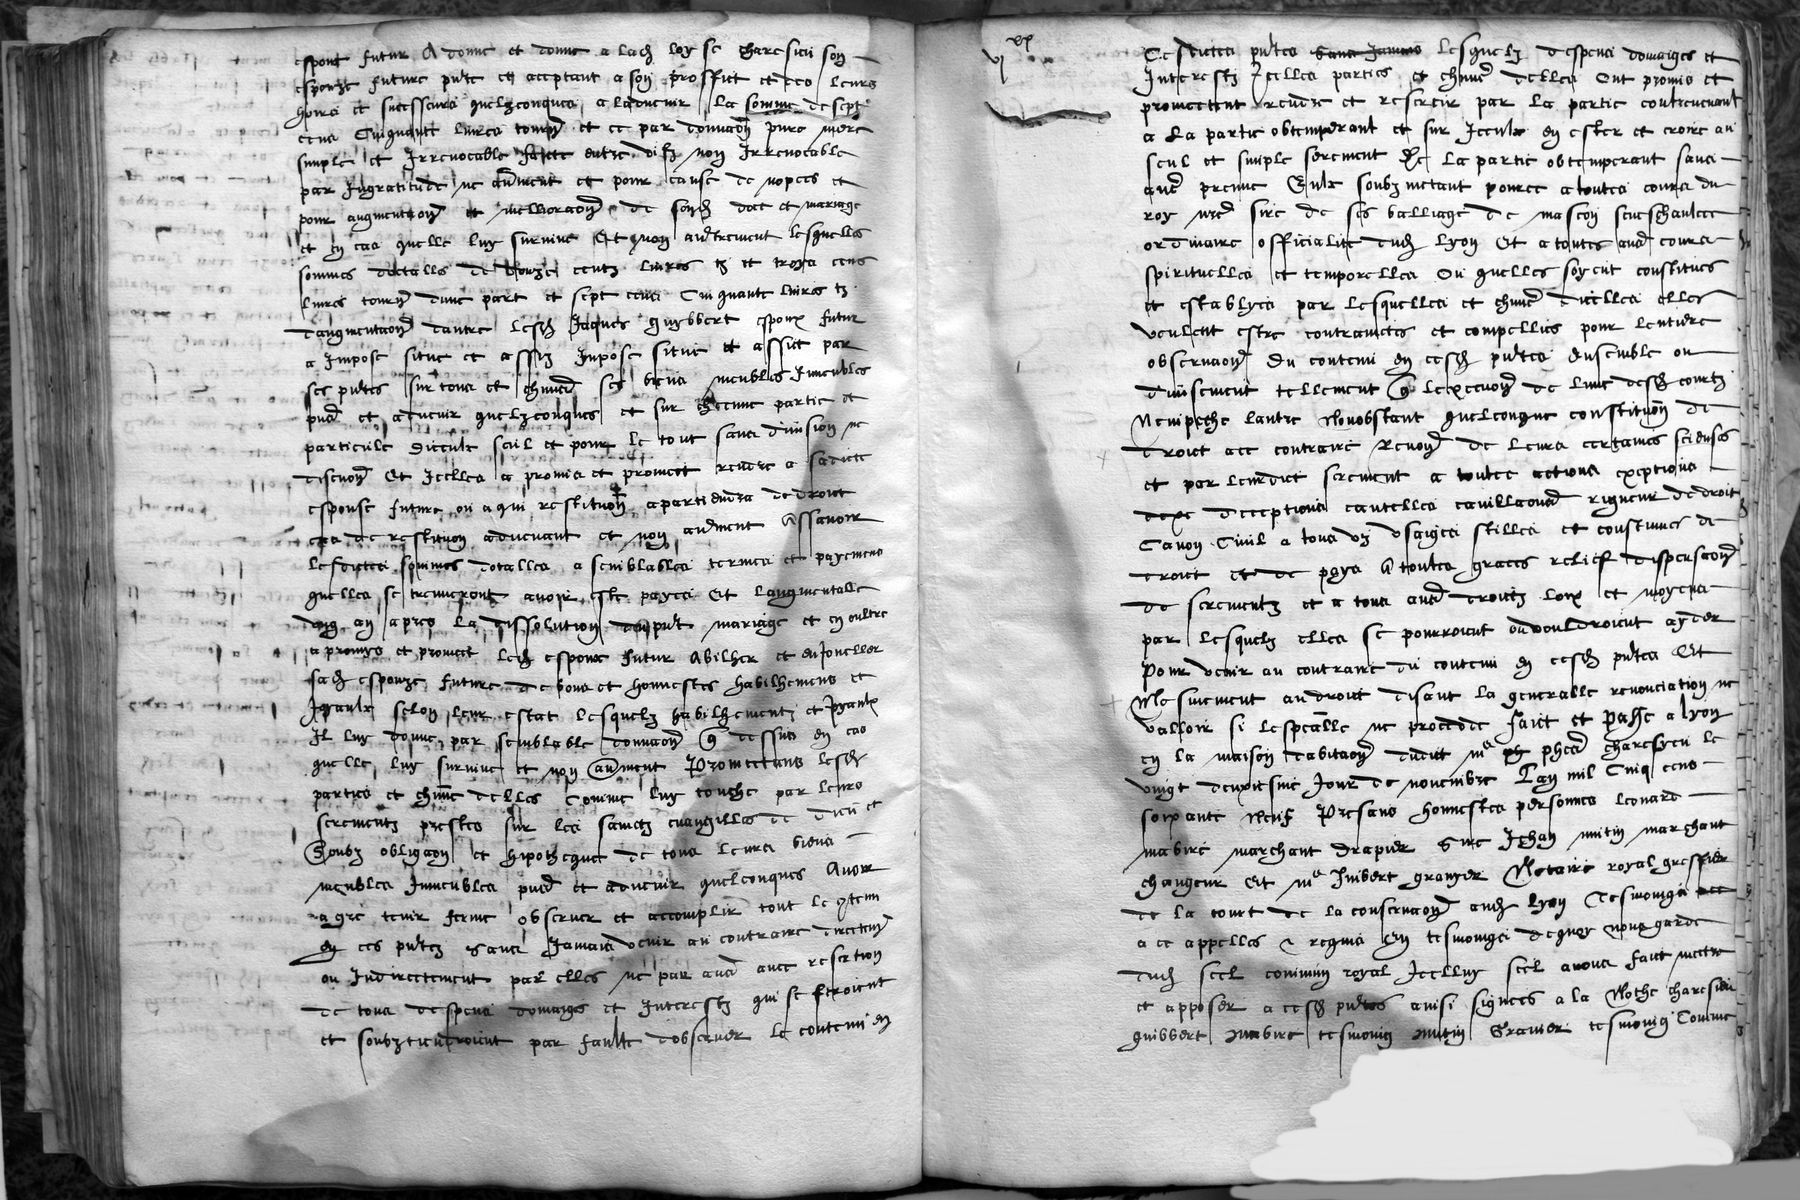 espoux futur A donne et donne a lad loyse charesieu son
espouze future pnte et acceptant a son proffict et des leurs
hoirs et successeurs quelzconques a ladvenir la somme de sept
cens cinquante livres tourn et ce par donnaon pure mere
simple et irrevocable faicte entre vifz non irrevocable
par ingratitude ne aultrement et pour cause de nopces et
pour augmentaon et melioraon de sond dot et mariage
et en cas quelle luy survive Et non aultrement lesquelles
sommes dotalles de douze centz livres tz et troys cens
livres tourn dune part et sept cens cinquante livres tz
daugmentaon dautre lesd Jaques guybbert espoux futur
a impose situe et assiz impose situe et assiet par
ses pntes sur tous et chnuns ses biens meubles immeubles
pns et advenir quelzconques et sur chune partie et
particule diceulx seul et pour le tout sans division ne
discuon Et icelles a promis et promect rendre a sadicte
espouse future ou a qui restituon apartiendra de droict
cas de restituon advenant et non aultrement Assavoir
lesdictes sommes dotalles a semblables termes et payemens
quelles se treuveront avoir este payes Et laugmentalle
ung an apres la dissolution du pnt mariage et en oultre
a promys et promect led espoux futur abilher et enjoueller
sad espouze future de bons et honnestes habilhemens et
joyaulx selon leur estat lesquelz habilhementz et joyaulx
il luy donne par semblable donnaon q dessus en cas
quelle luy survive et non aultrement Promectans lesd
parties et chune delles comme luy touche par leurs
serementz prestes sur les sainctz evangilles de dieu et
soubz obligaon et hipotheque de tous leurs biens
meubles immeubles pns et advenir quelconques Avoir
a gre tenir ferme observer et accomplir tout le contenu
en ces pntes sans jamais venir au contraire directemt
ou indirectement par elles ne par aues avec reffection
de tous despens domaiges et interestz qui se feroient
et soubztiendroient par faulte dobserver le contenu en
Cesdictes pntes lesquelz despens domaiges et
interestz icelles parties et chune delles Ont promis et
promectent rendre et reffreir par la partie contrevenant
a la partie obtemperant et sur iceulx en ester et croire au
seul et simple serement de la partie obtemperant sans
aue preuve Eulx soubzmetant pource a toutes cours du
roy nre sire de ses balliage de mascon seneschaulcee
ordinaire officialite dud lyon Et a toutes aues cours
spirituelles et temporelles ou quelles soyent constitues
et establyes par lesquelles et chune dicelles elles
veulent estre contrainctes et compellies pour lentiere
observaon du contenu en cesd pntes ensemble ou
divisement tellement q lexecuon de lune desd courtz
Nempeche lautre Nonobstant quelconque constituon de
droict a ce contraire Renon de leurs certaines sciences
et par leurdict serement a toutes actions exceptions
decxe deceptions cautelles cavillaons rigueur de droit
Canon Civil a tous uz usaiges stilles et coustumes de
droict et de pays a toutes graces relief dispensaon
de serementz et a tous aues droictz loix et moyens
par lesquelz elles se pourroient ou vouldroient ayder
pour venir au contraire du contenu en cesd pntes Et
Mesmement au droict disant la generalle renonciation ne
valloir si lespealle ne procede faict et passe a lyon
en la maison dabitaon dudict me phes charesyeu le
vingt deuxiesme jour de novembre Lan mil cinq cens
soixante Neuf Presans honnestes personnes leonard
mabire marchant drapier sire Jehan mutin marchant
changeur Et me Imbert granyer Notaire royal greffier
de la court de la conservaon aud lyon Tesmoings
a ce appelles et requis En tesmoings dequoy nous garde
dud seel commun royal icelluy seel avons faict mectre
et apposer a cesd pntes ainsi signees a la Nothe charesieu
guibbert mabire tesmoing mutin Granier tesmoing Comme